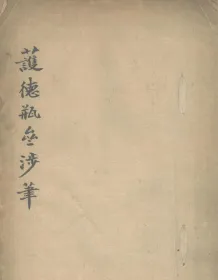 護德瓶齋涉筆